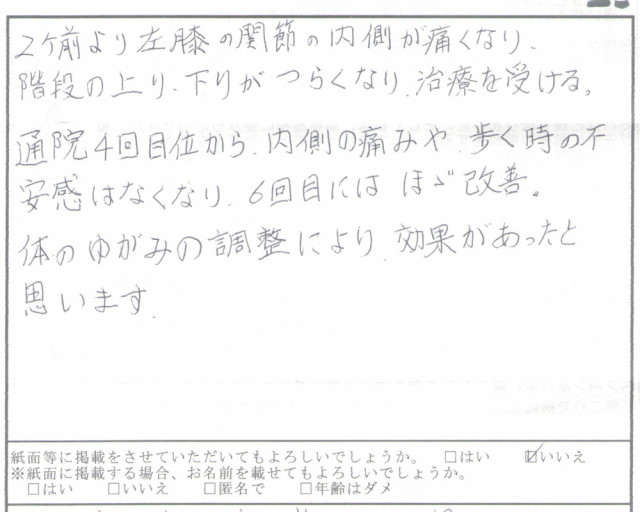 2ケ前より左膝の関節の内側が痛くなり、
階段の上り、下りがつらくなり、治療を受ける。
通院4回目位から、内側の痛みや、歩く時の不
安感はなくなり、6回目にはほゞ改善。
体のゆがみの調整により、効果があったと
思います。
紙面等に掲載をさせていただいてもよろしいでしょうか。 □はい ☑いいえ
※紙面に掲載する場合、お名前を載せてもよろしいでしょうか。
□はい □いいえ □匿名で □年齢はダメ